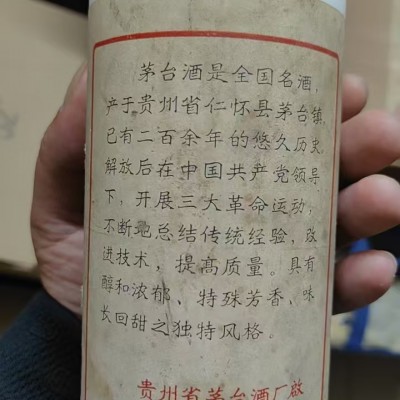 茅台酒是全国名酒，
产于贵州省仁怀县茅台镇，
已有二百余年的悠久历史，
解放后在中国共产党领导
下，开展三大革命运动，
不断地总结传统经验，改
进技术，提高质量。具有
醇和浓郁、特殊芳香、味
长回甜之独特风格。
贵州省茅台酒厂啟